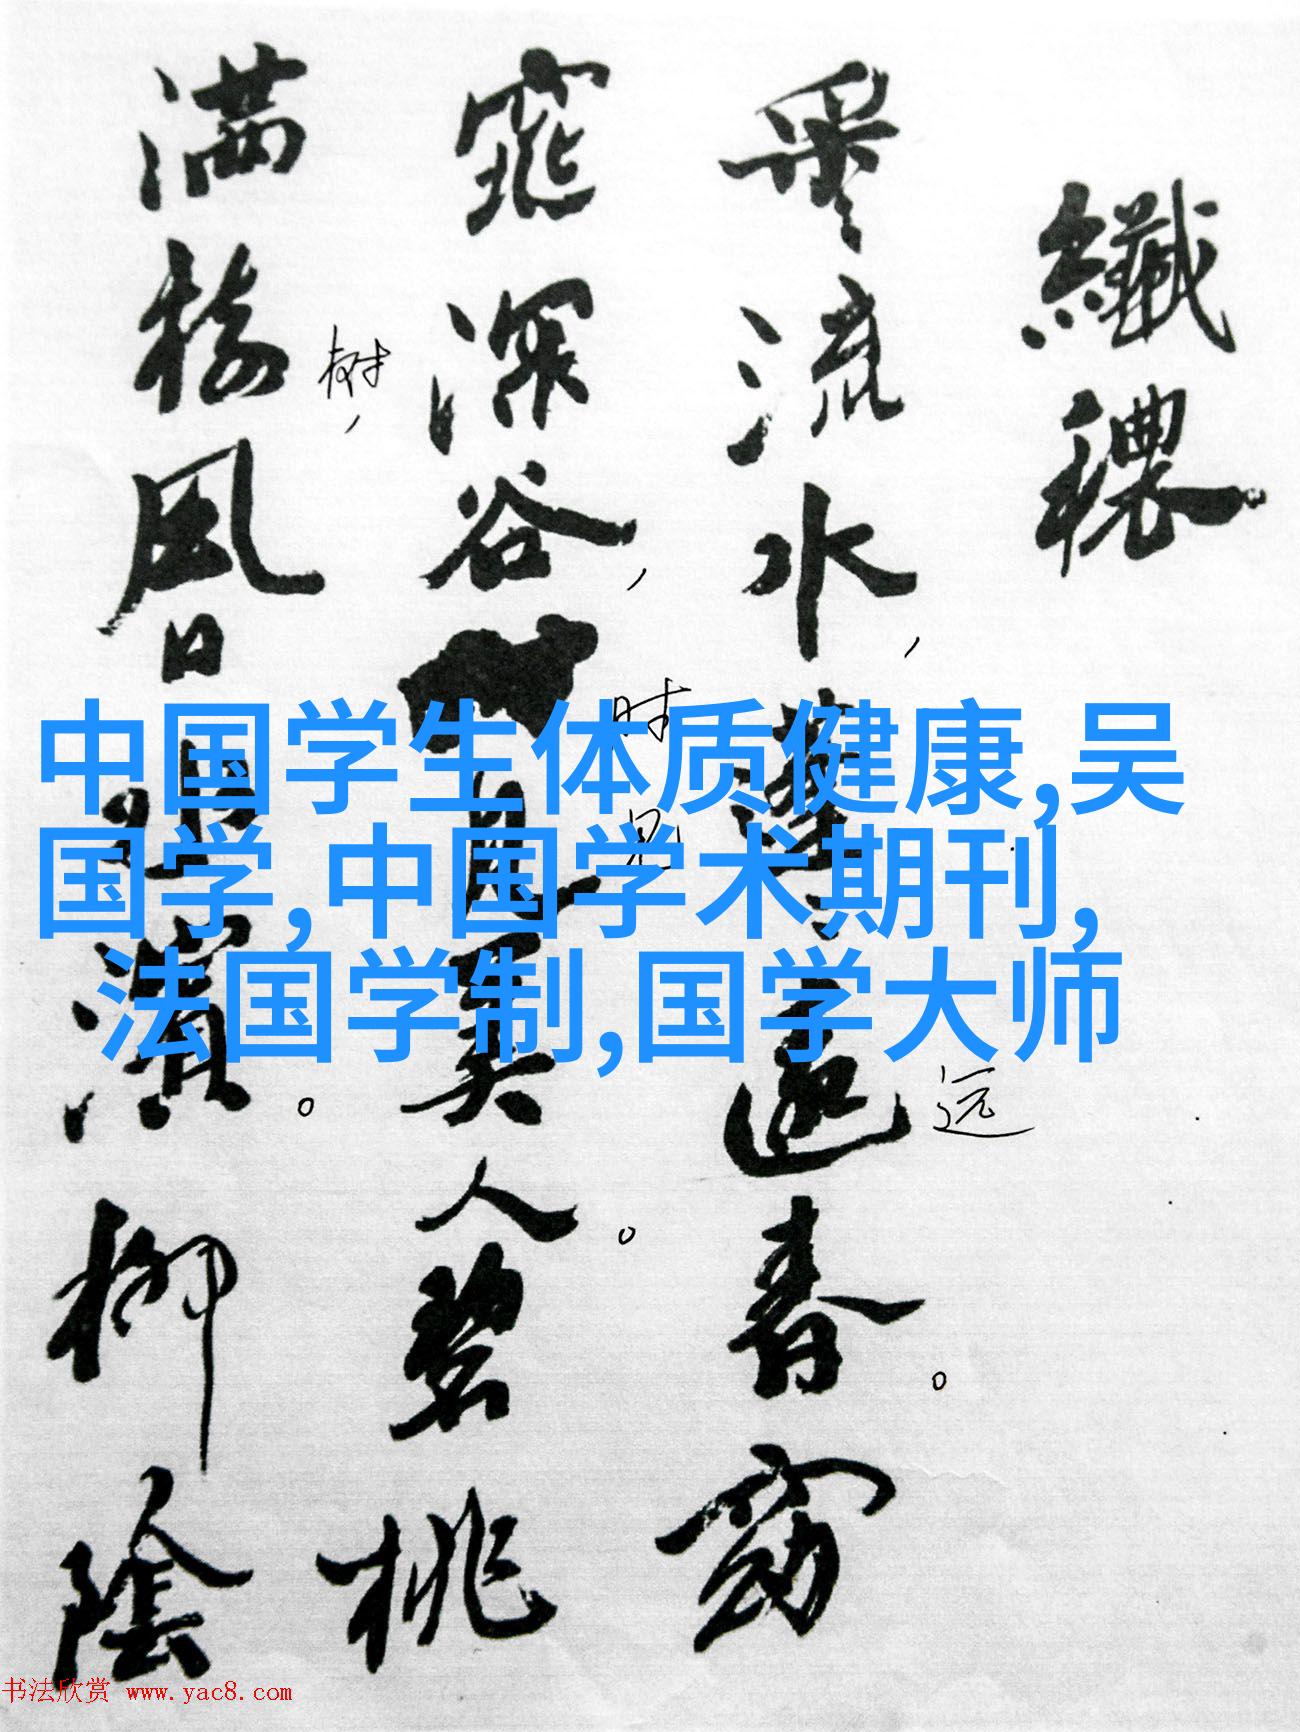 纖穠
采流水蓬蓬遠春窈
窕深谷見美人碧桃
满樹风日水濱柳陰
树,
,
时
见
远
。
中国学生体质健康,吴
国学,中国学术期刊,
法国学制,国学大师
书法欣赏 www.yac8.com